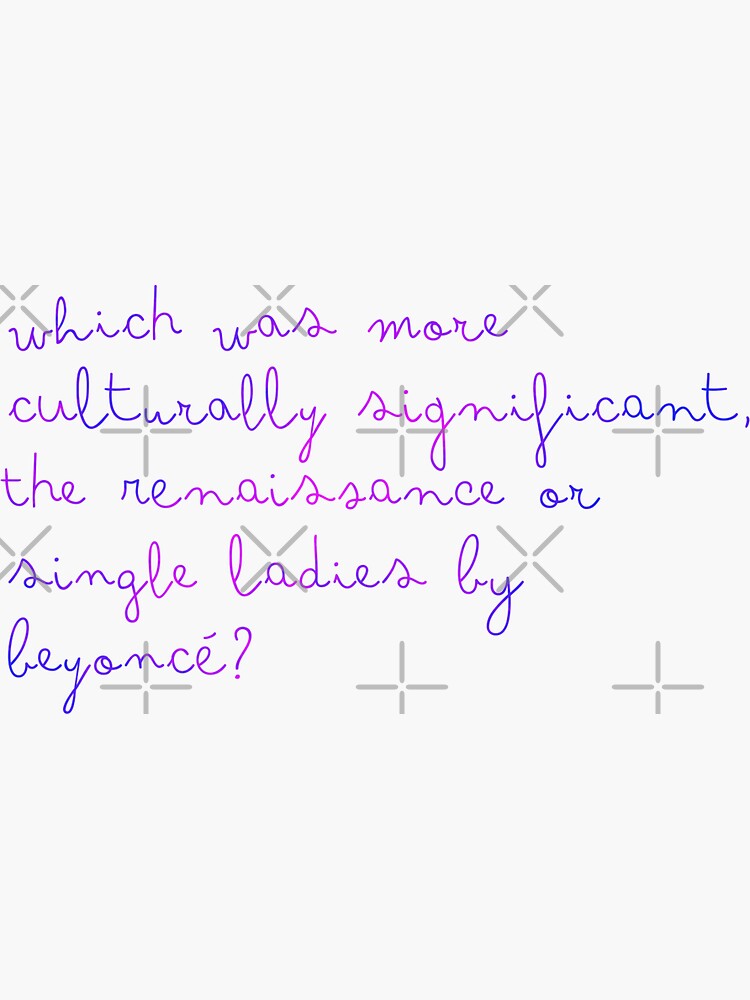 which was more
culturally significant,
the renaissance or
single ladies by
beyoncé?